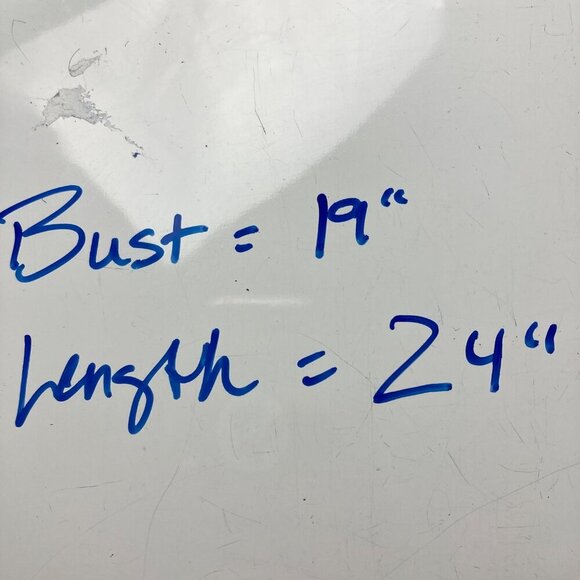 Bust = 19"
Length = 24"